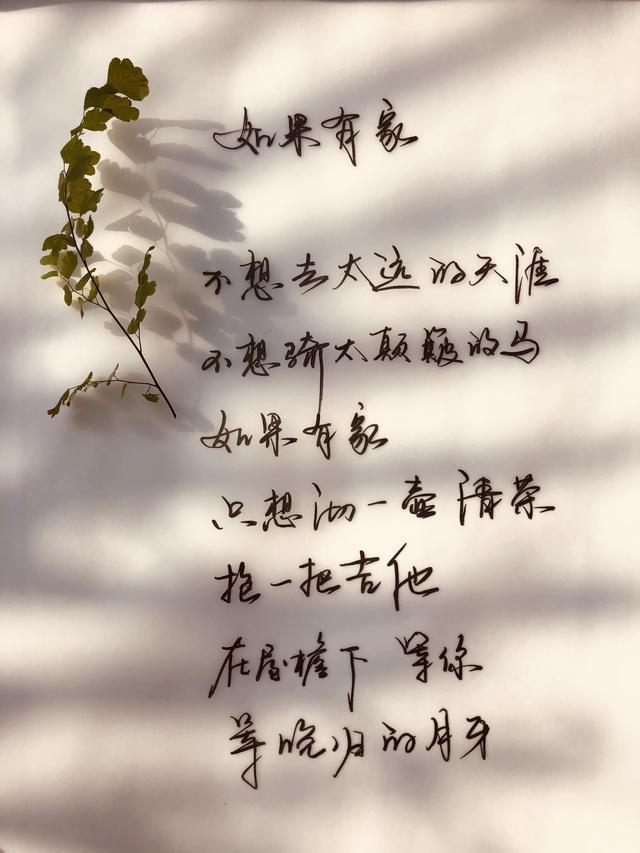 如果有家
不想去太远的天涯
不想骑太颠簸的马
如果有家
只想沏一壶清茶
抱一把吉他
在屋檐下 等你
等晚归的月牙